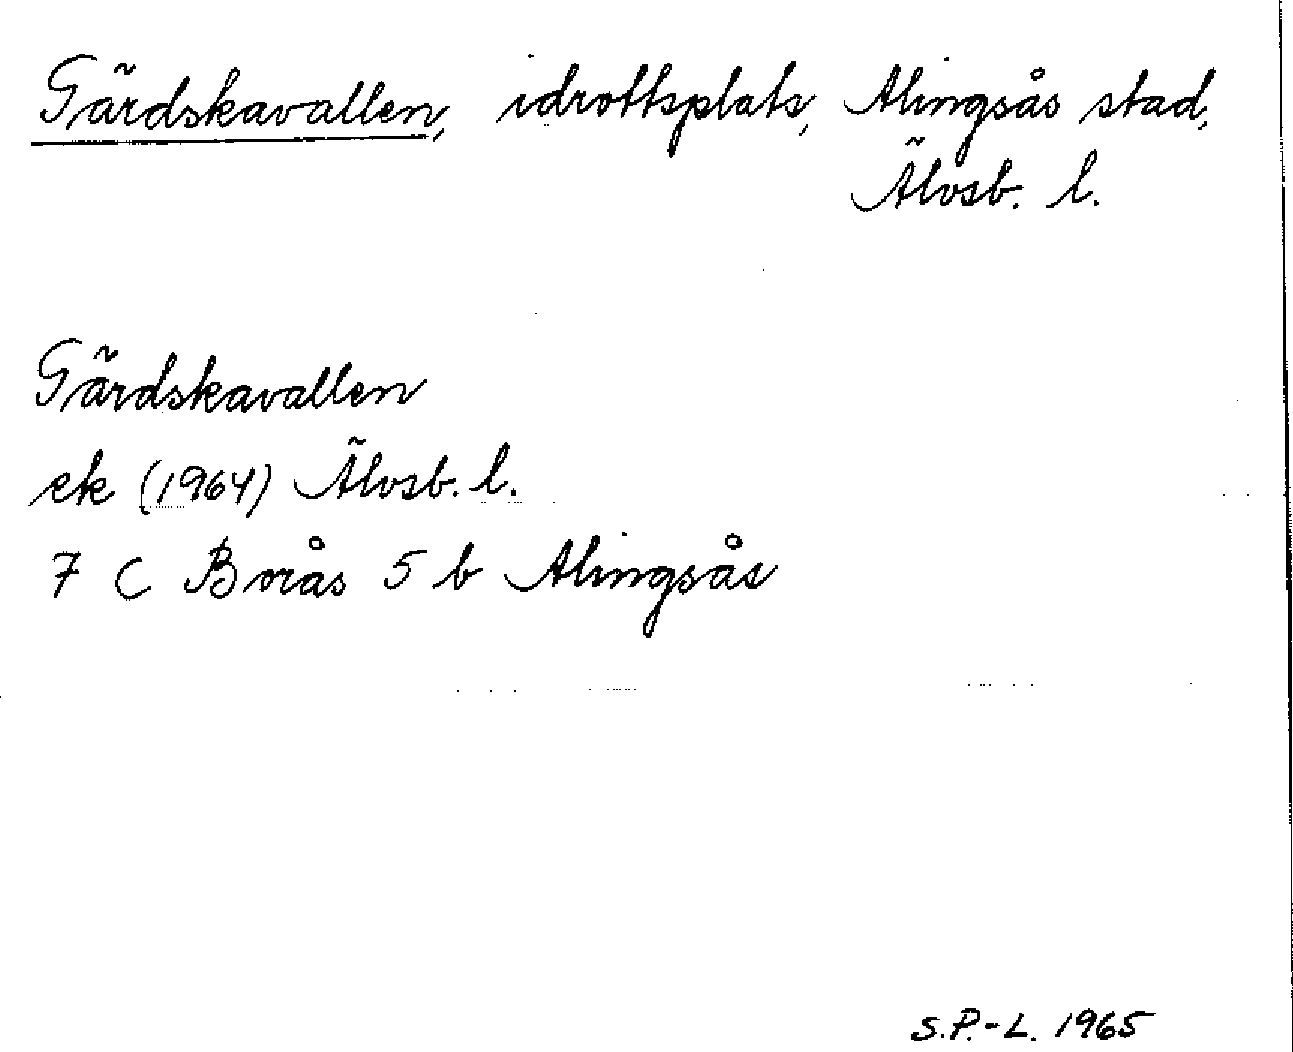 Gärdskavallen, idrottsplats, Alingsås stad,
Älvsb. l.
Gärdskavallen
ek (1964) Älvsb. l.
7 C Borås 5 b Alingsås
S.P.-L. 1965